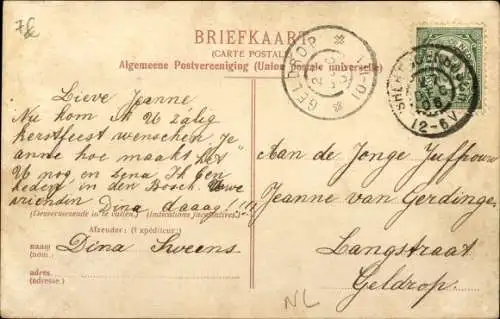 BRIEFKAART
(CARTE POSTALE)
Algemeene Postvereeniging (Union postale universelle)
GELDROP
'SHERTOGENBOSCH
12-6V
Lieve Jeanne
Nu kom ik U zalig
kerstfeest wenschen Je
anne hoe maakt het
U nog en Lena Ik ben
heden in den Bosch. Uwe
vrienden Dina daaag!!!
(Dewerkzijde in te vullen.) (Indications facultatives.)
Afzender: (Expéditeur:)
naam Dina Sweens
(nom.)
adres.
(adresse.)
Aan de Jonge Juffrouw
Jeanne van Gerdinge
Langstraat
Geldrop.
NL